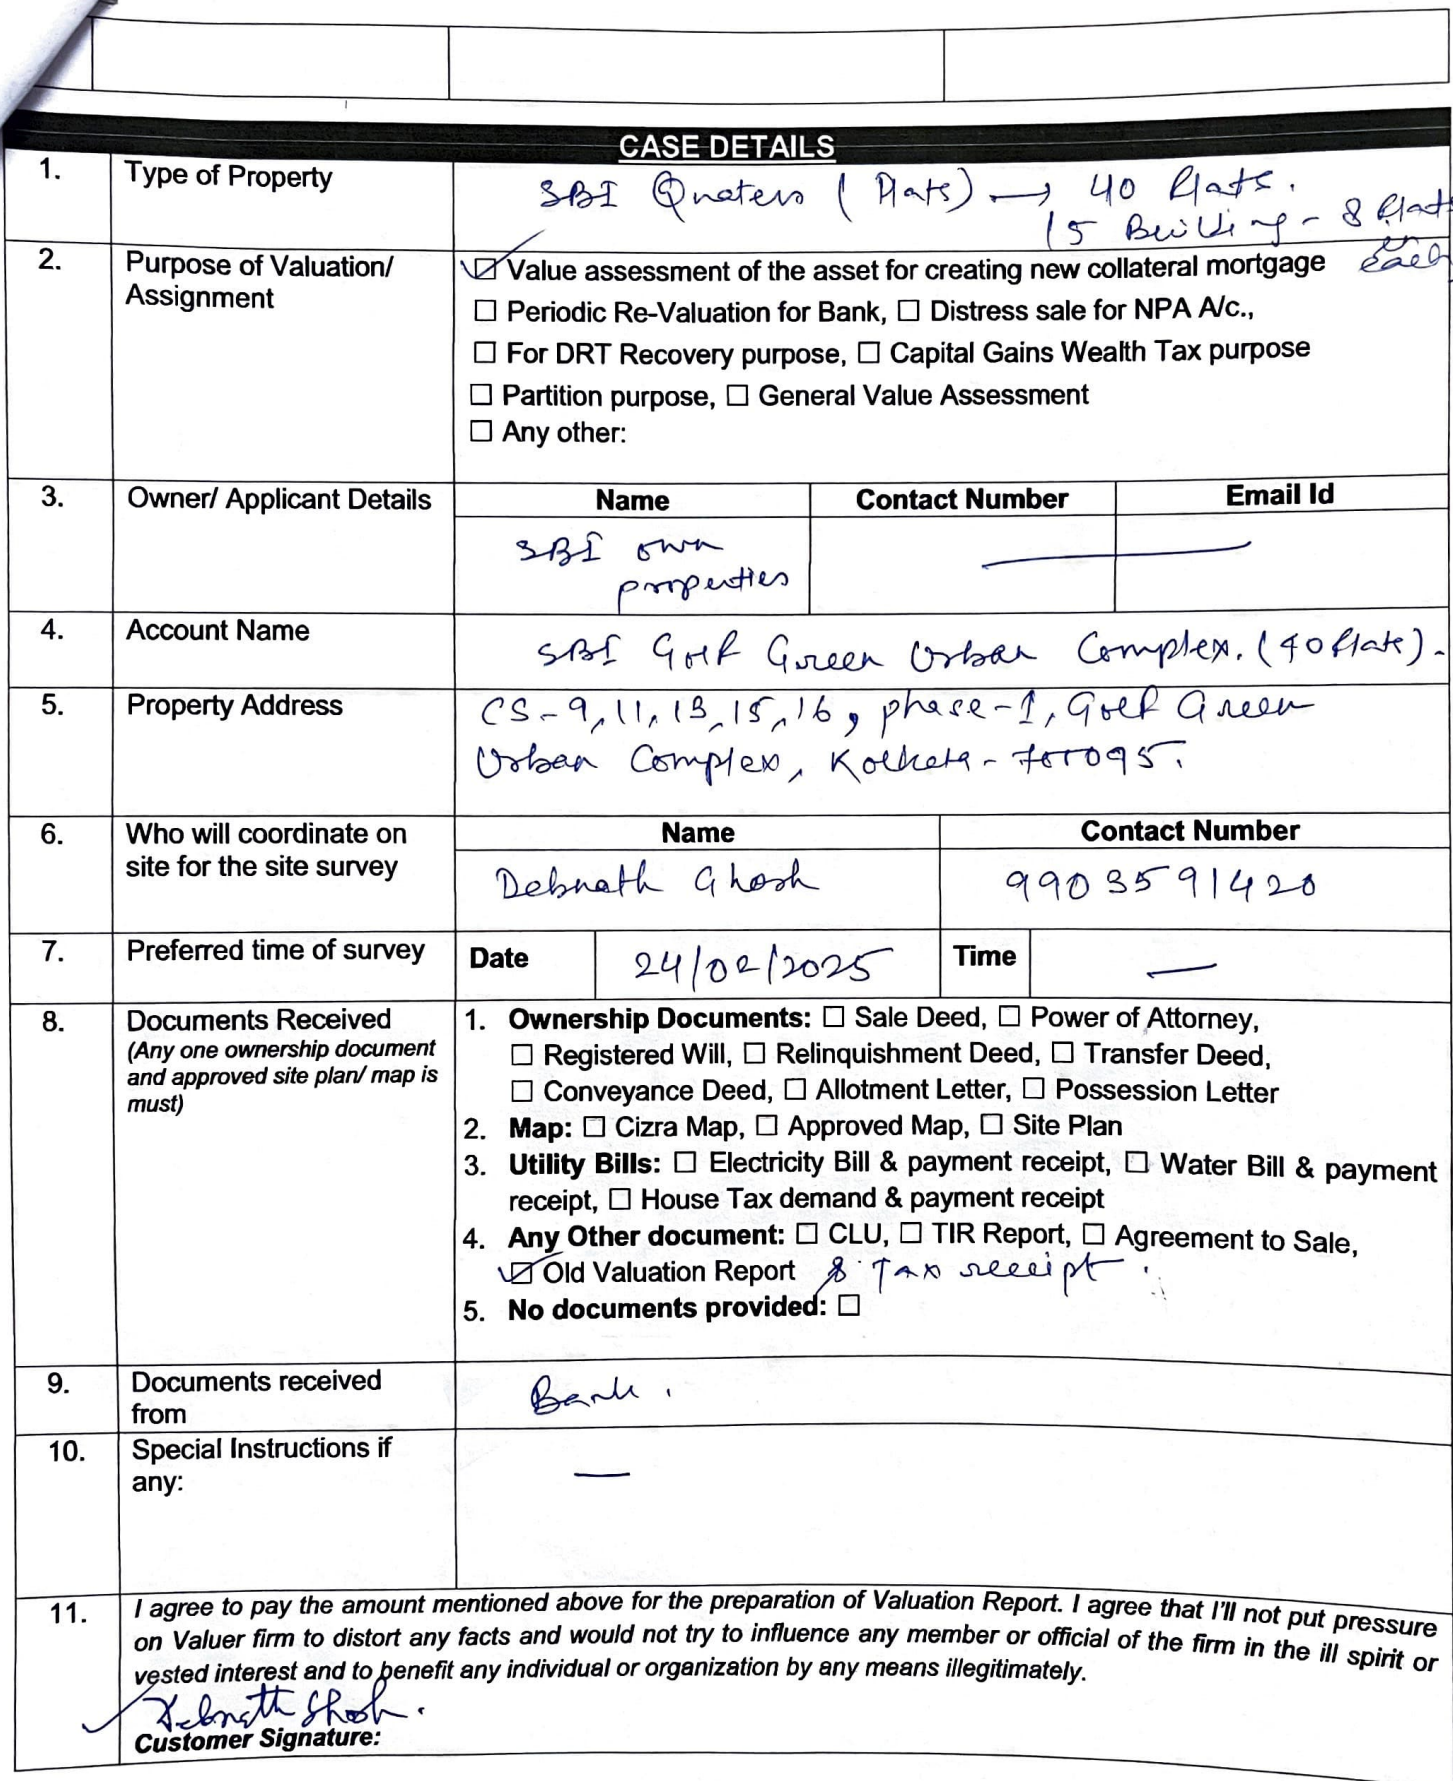 CASE DETAILS
1. Type of Property SBI Quaters (Flats) → 40 flats.
(5 Building - 8 flats
each
2. Purpose of Valuation/ Assignment
☑ Value assessment of the asset for creating new collateral mortgage
☐ Periodic Re-Valuation for Bank, ☐ Distress sale for NPA A/c.,
☐ For DRT Recovery purpose, ☐ Capital Gains Wealth Tax purpose
☐ Partition purpose, ☐ General Value Assessment
☐ Any other:
3. Owner/ Applicant Details Name Contact Number Email Id
SBI own
properties —
4. Account Name SBI Golf Green Urban Complex. (40 flats).
5. Property Address CS-9, 11, 13, 15, 16, phase-1, Golf Green
Urban Complex, Kolkata - 700095.
6. Who will coordinate on Name Contact Number
site for the site survey Debnath Ghosh 9903591420
7. Preferred time of survey Date 24/02/2025 Time —
8. Documents Received
(Any one ownership document
and approved site plan/ map is
must)
1. Ownership Documents: ☐ Sale Deed, ☐ Power of Attorney,
☐ Registered Will, ☐ Relinquishment Deed, ☐ Transfer Deed,
☐ Conveyance Deed, ☐ Allotment Letter, ☐ Possession Letter
2. Map: ☐ Cizra Map, ☐ Approved Map, ☐ Site Plan
3. Utility Bills: ☐ Electricity Bill & payment receipt, ☐ Water Bill & payment
receipt, ☐ House Tax demand & payment receipt
4. Any Other document: ☐ CLU, ☐ TIR Report, ☐ Agreement to Sale,
☑ Old Valuation Report & Tax receipt.
5. No documents provided: ☐
9. Documents received Bank.
from
10. Special Instructions if —
any:
11. I agree to pay the amount mentioned above for the preparation of Valuation Report. I agree that I'll not put pressure
on Valuer firm to distort any facts and would not try to influence any member or official of the firm in the ill spirit or
vested interest and to benefit any individual or organization by any means illegitimately.
Debnath Ghosh.
Customer Signature: